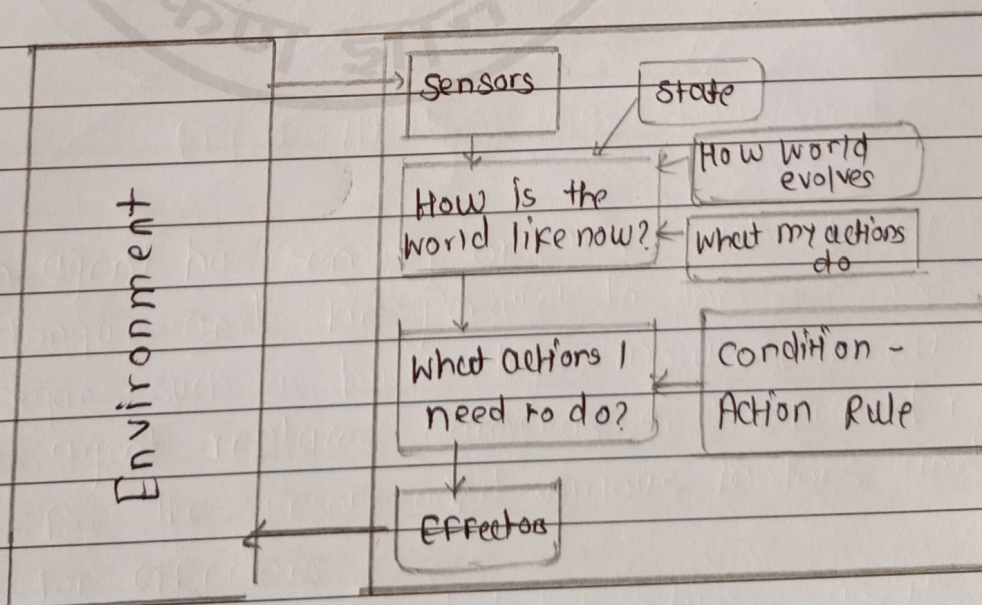 Environment
Sensors
State
How is the
world like now?
How world
evolves
what my actions
do
What actions I
need to do?
Condition -
Action Rule
Effectors